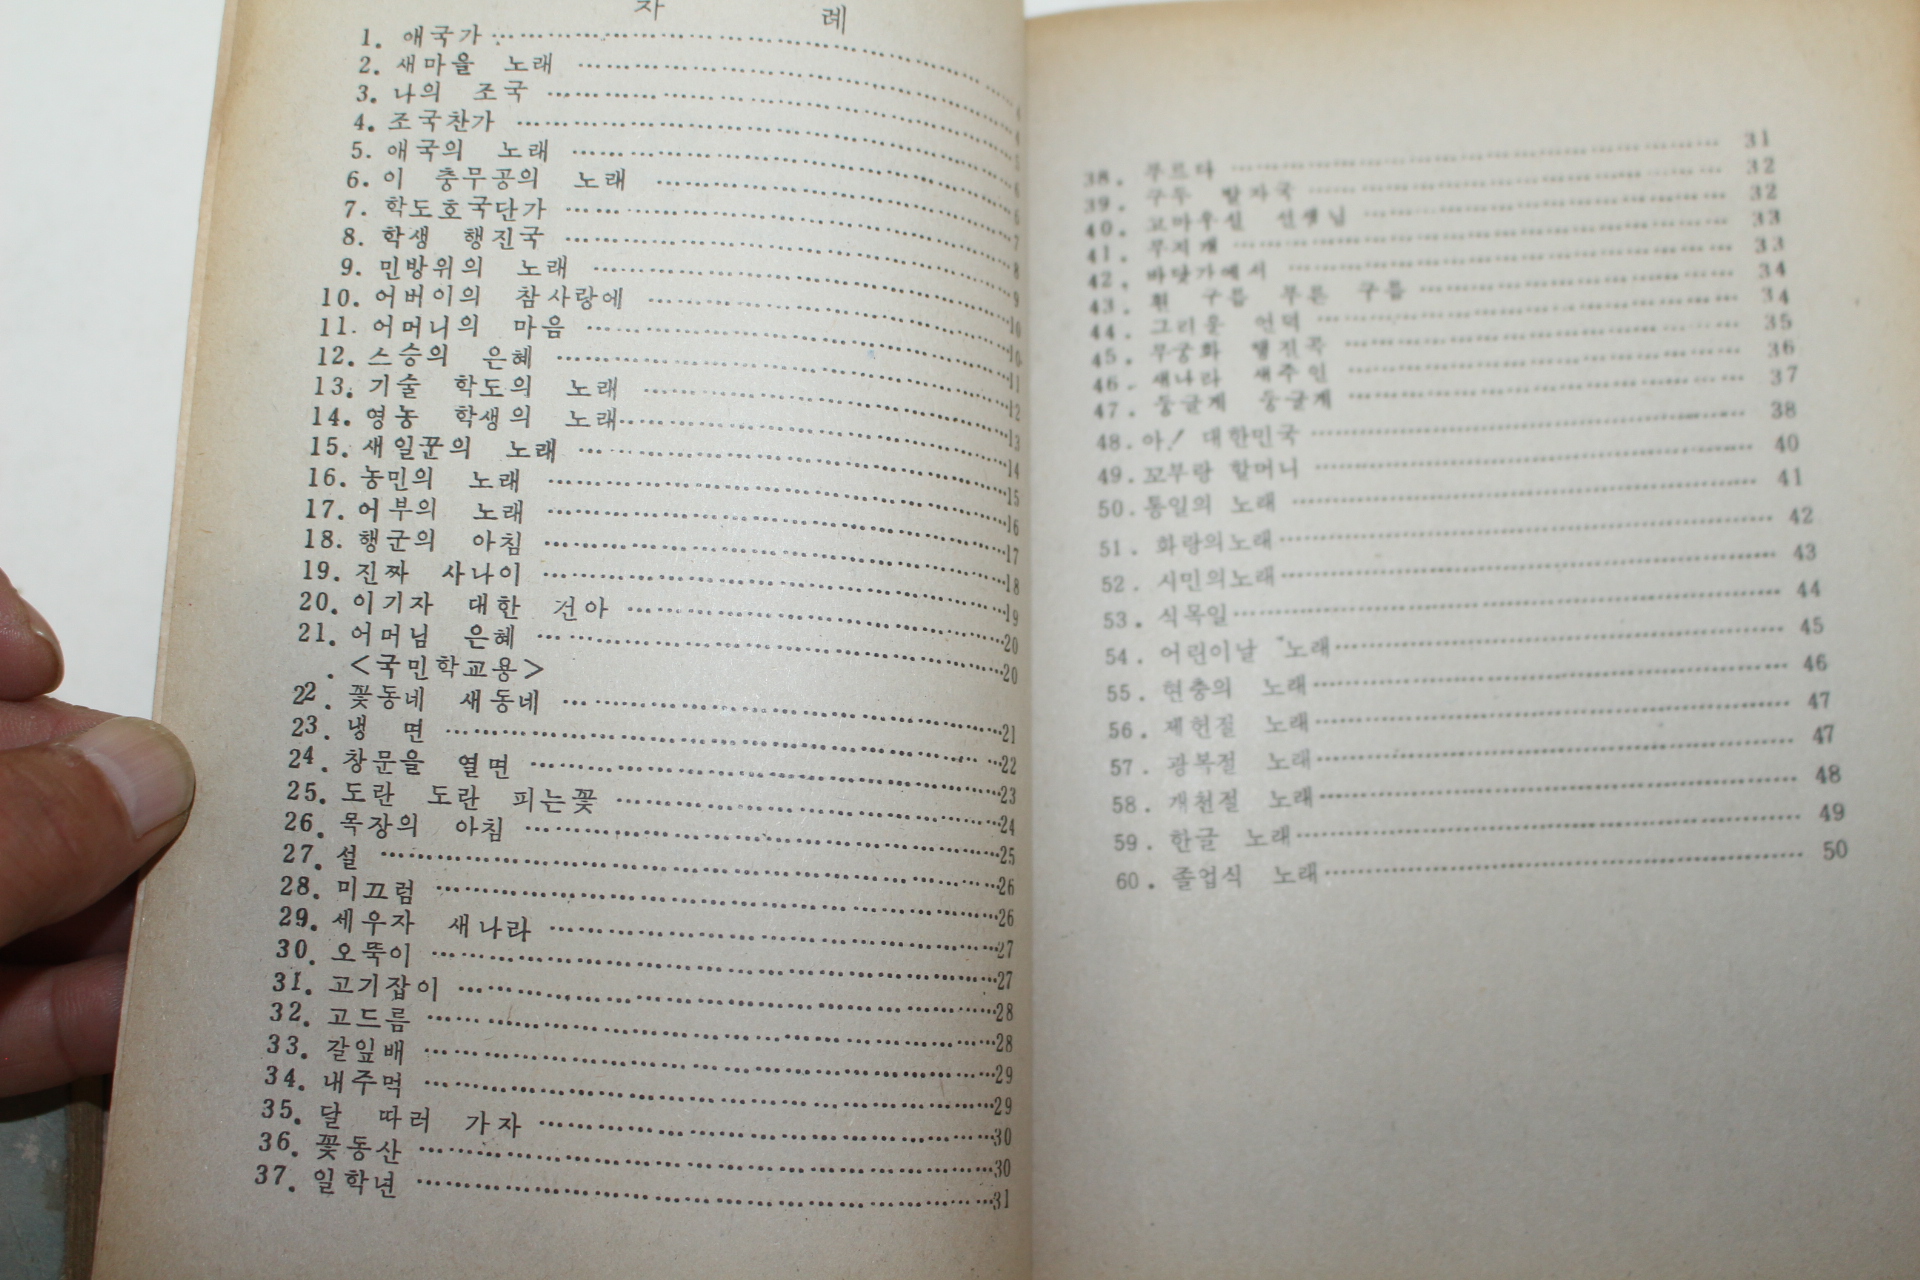 차 례
1. 애국가 4
2. 새마을 노래 4
3. 나의 조국 5
4. 조국찬가 6
5. 애국의 노래 6
6. 이 충무공의 노래 7
7. 학도호국단가 8
8. 학생 행진국 9
9. 민방위의 노래 10
10. 어버이의 참사랑에 10
11. 어머니의 마음 11
12. 스승의 은혜 12
13. 기술 학도의 노래 13
14. 영농 학생의 노래 14
15. 새일꾼의 노래 15
16. 농민의 노래 16
17. 어부의 노래 17
18. 행군의 아침 18
19. 진짜 사나이 19
20. 이기자 대한 건아 20
21. 어머님 은혜 20
<국민학교용>
22. 꽃동네 새동네 21
23. 냉 면 22
24. 창문을 열면 23
25. 도란 도란 피는꽃 24
26. 목장의 아침 25
27. 설 26
28. 미끄럼 26
29. 세우자 새나라 27
30. 오뚝이 27
31. 고기잡이 28
32. 고드름 28
33. 갈잎배 29
34. 내주먹 29
35. 달 따러 가자 30
36. 꽃동산 30
37. 일학년 31
38. 푸르다 31
39. 구두 발자국 32
40. 고마우신 선생님 32
41. 무지개 33
42. 바닷가에서 33
43. 흰 구름 푸른 구름 34
44. 그리운 언덕 34
45. 무궁화 행진곡 35
46. 새나라 새주인 36
47. 둥글게 둥글게 37
48. 아! 대한민국 38
49. 꼬부랑 할머니 40
50. 통일의 노래 41
51. 화랑의노래 42
52. 시민의노래 43
53. 식목일 44
54. 어린이날 노래 45
55. 현충의 노래 46
56. 제헌절 노래 47
57. 광복절 노래 47
58. 개천절 노래 48
59. 한글 노래 49
60. 졸업식 노래 50